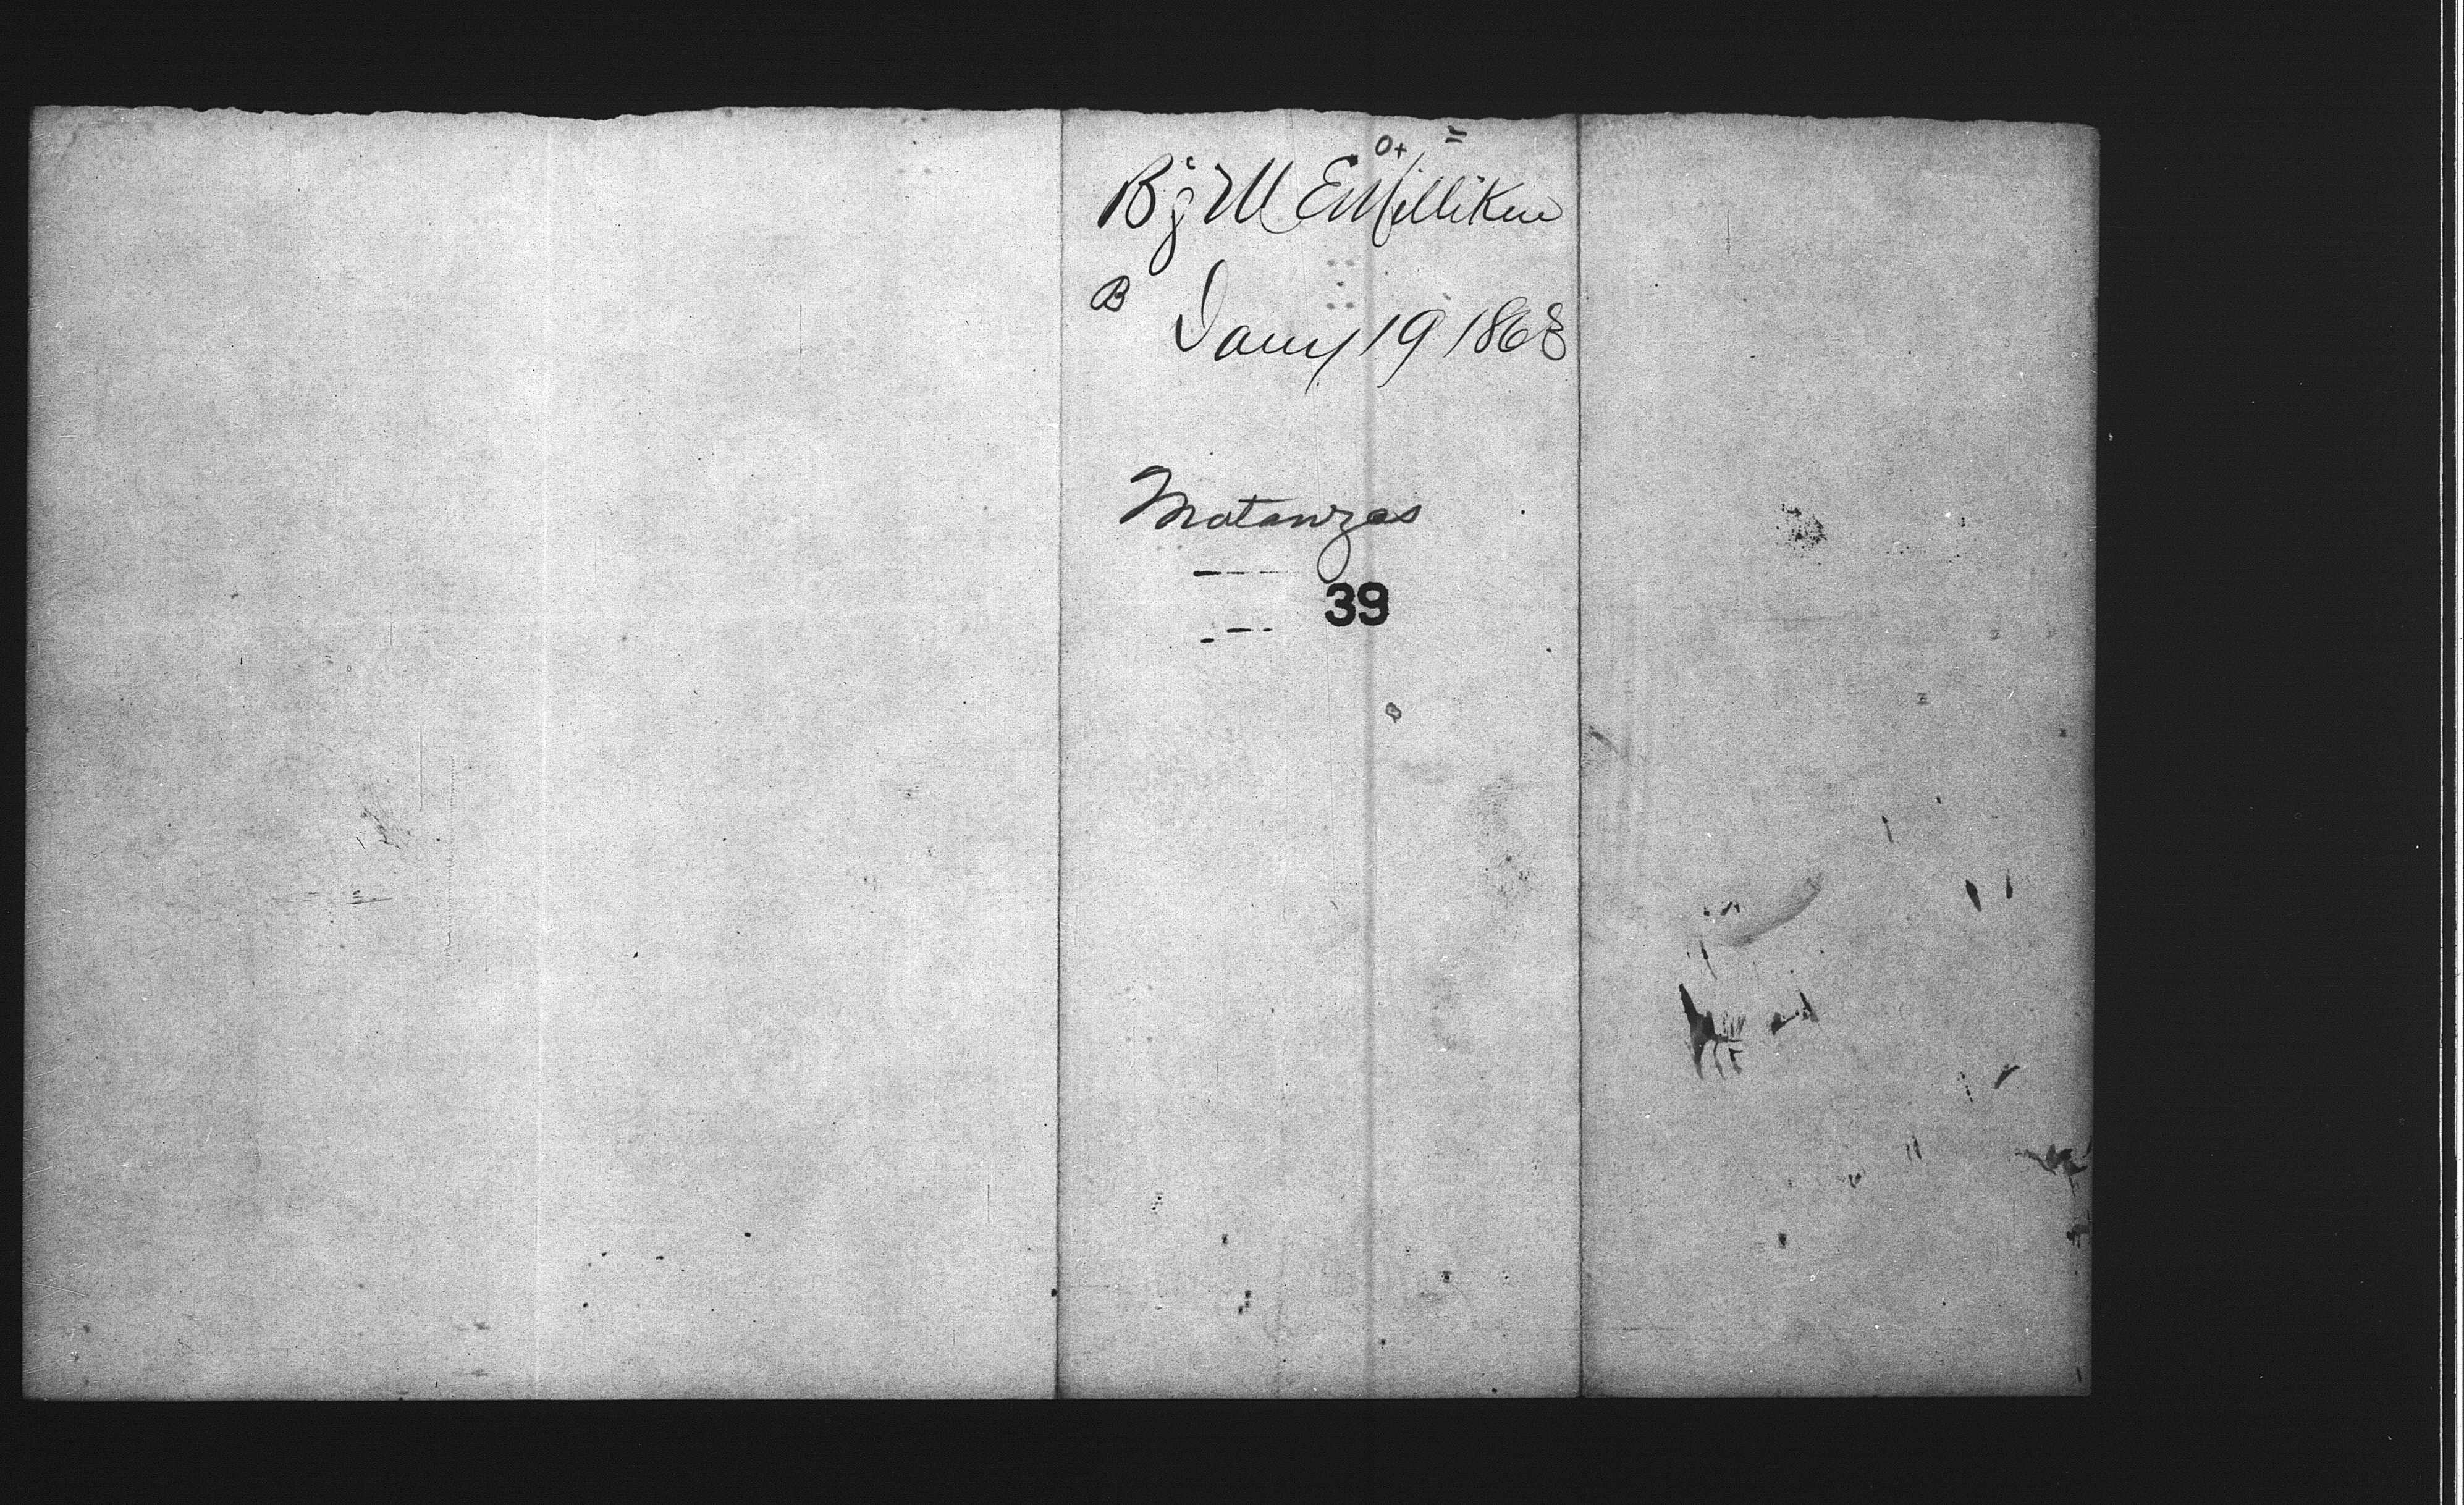 Bg M E Milliken
B
Jany 19 1868
Matanzas
39